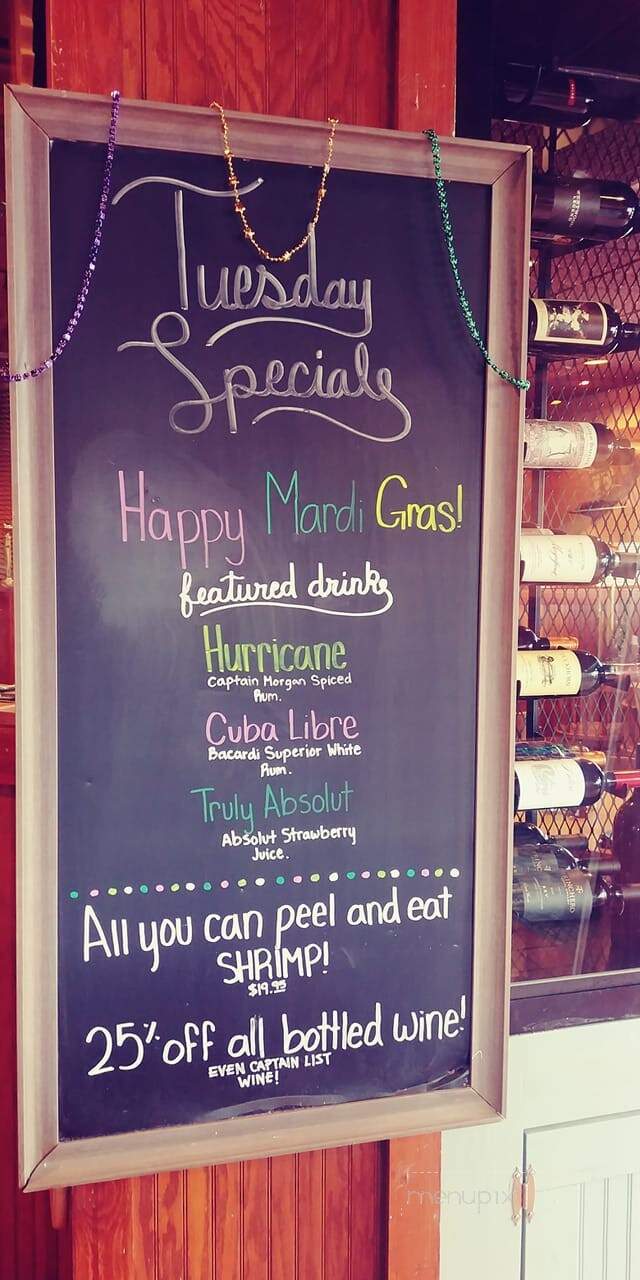 Tuesday
Specials
Happy Mardi Gras!
featured drinks
Hurricane
Captain Morgan Spiced
Rum.
Cuba Libre
Bacardi Superior White
Rum.
Truly Absolut
Absolut Strawberry
Juice.
All you can peel and eat
SHRIMP!
$19.95
25% off all bottled wine!
EVEN CAPTAIN LIST
WINE!
menupix